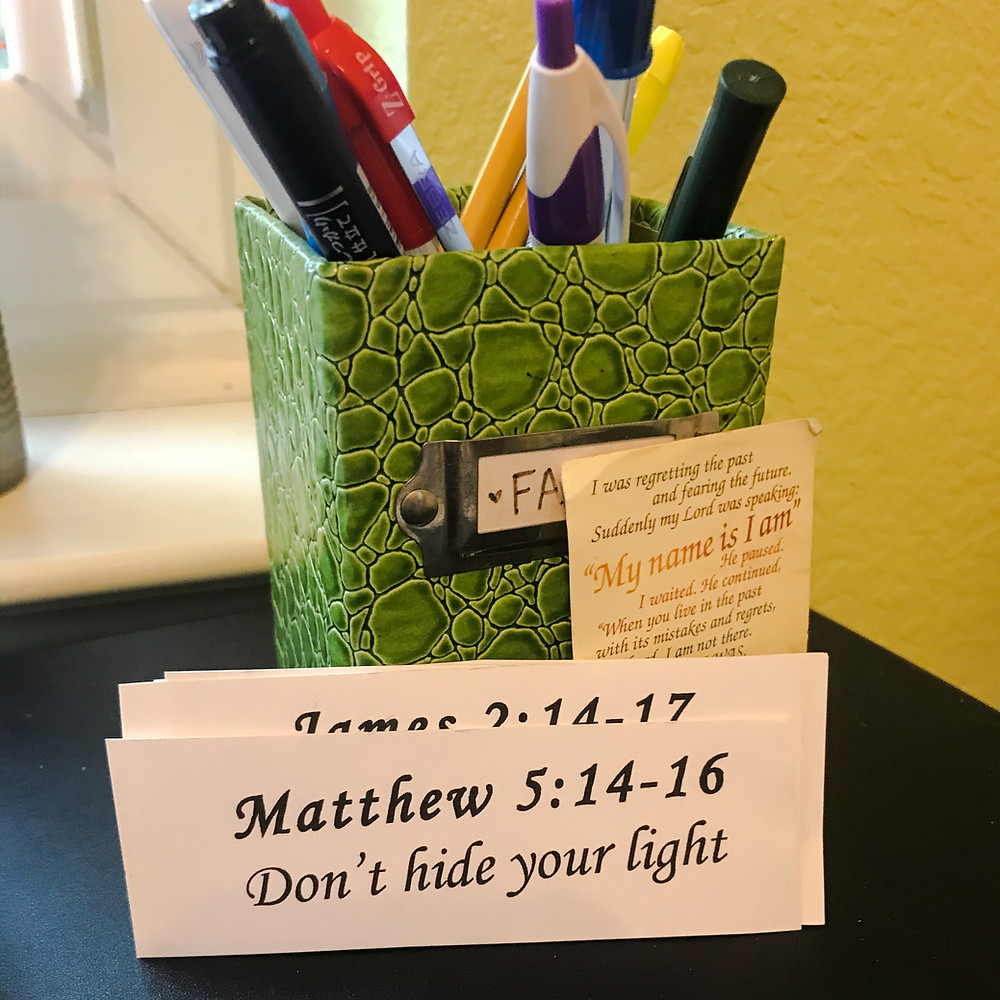 Z-Grip
♥ FA
I was regretting the past
and fearing the future.
Suddenly my Lord was speaking:
"My name is I am"
He paused.
I waited. He continued,
"When you live in the past
with its mistakes and regrets,
I am not there.
James 2:14-17
Matthew 5:14-16
Don't hide your light